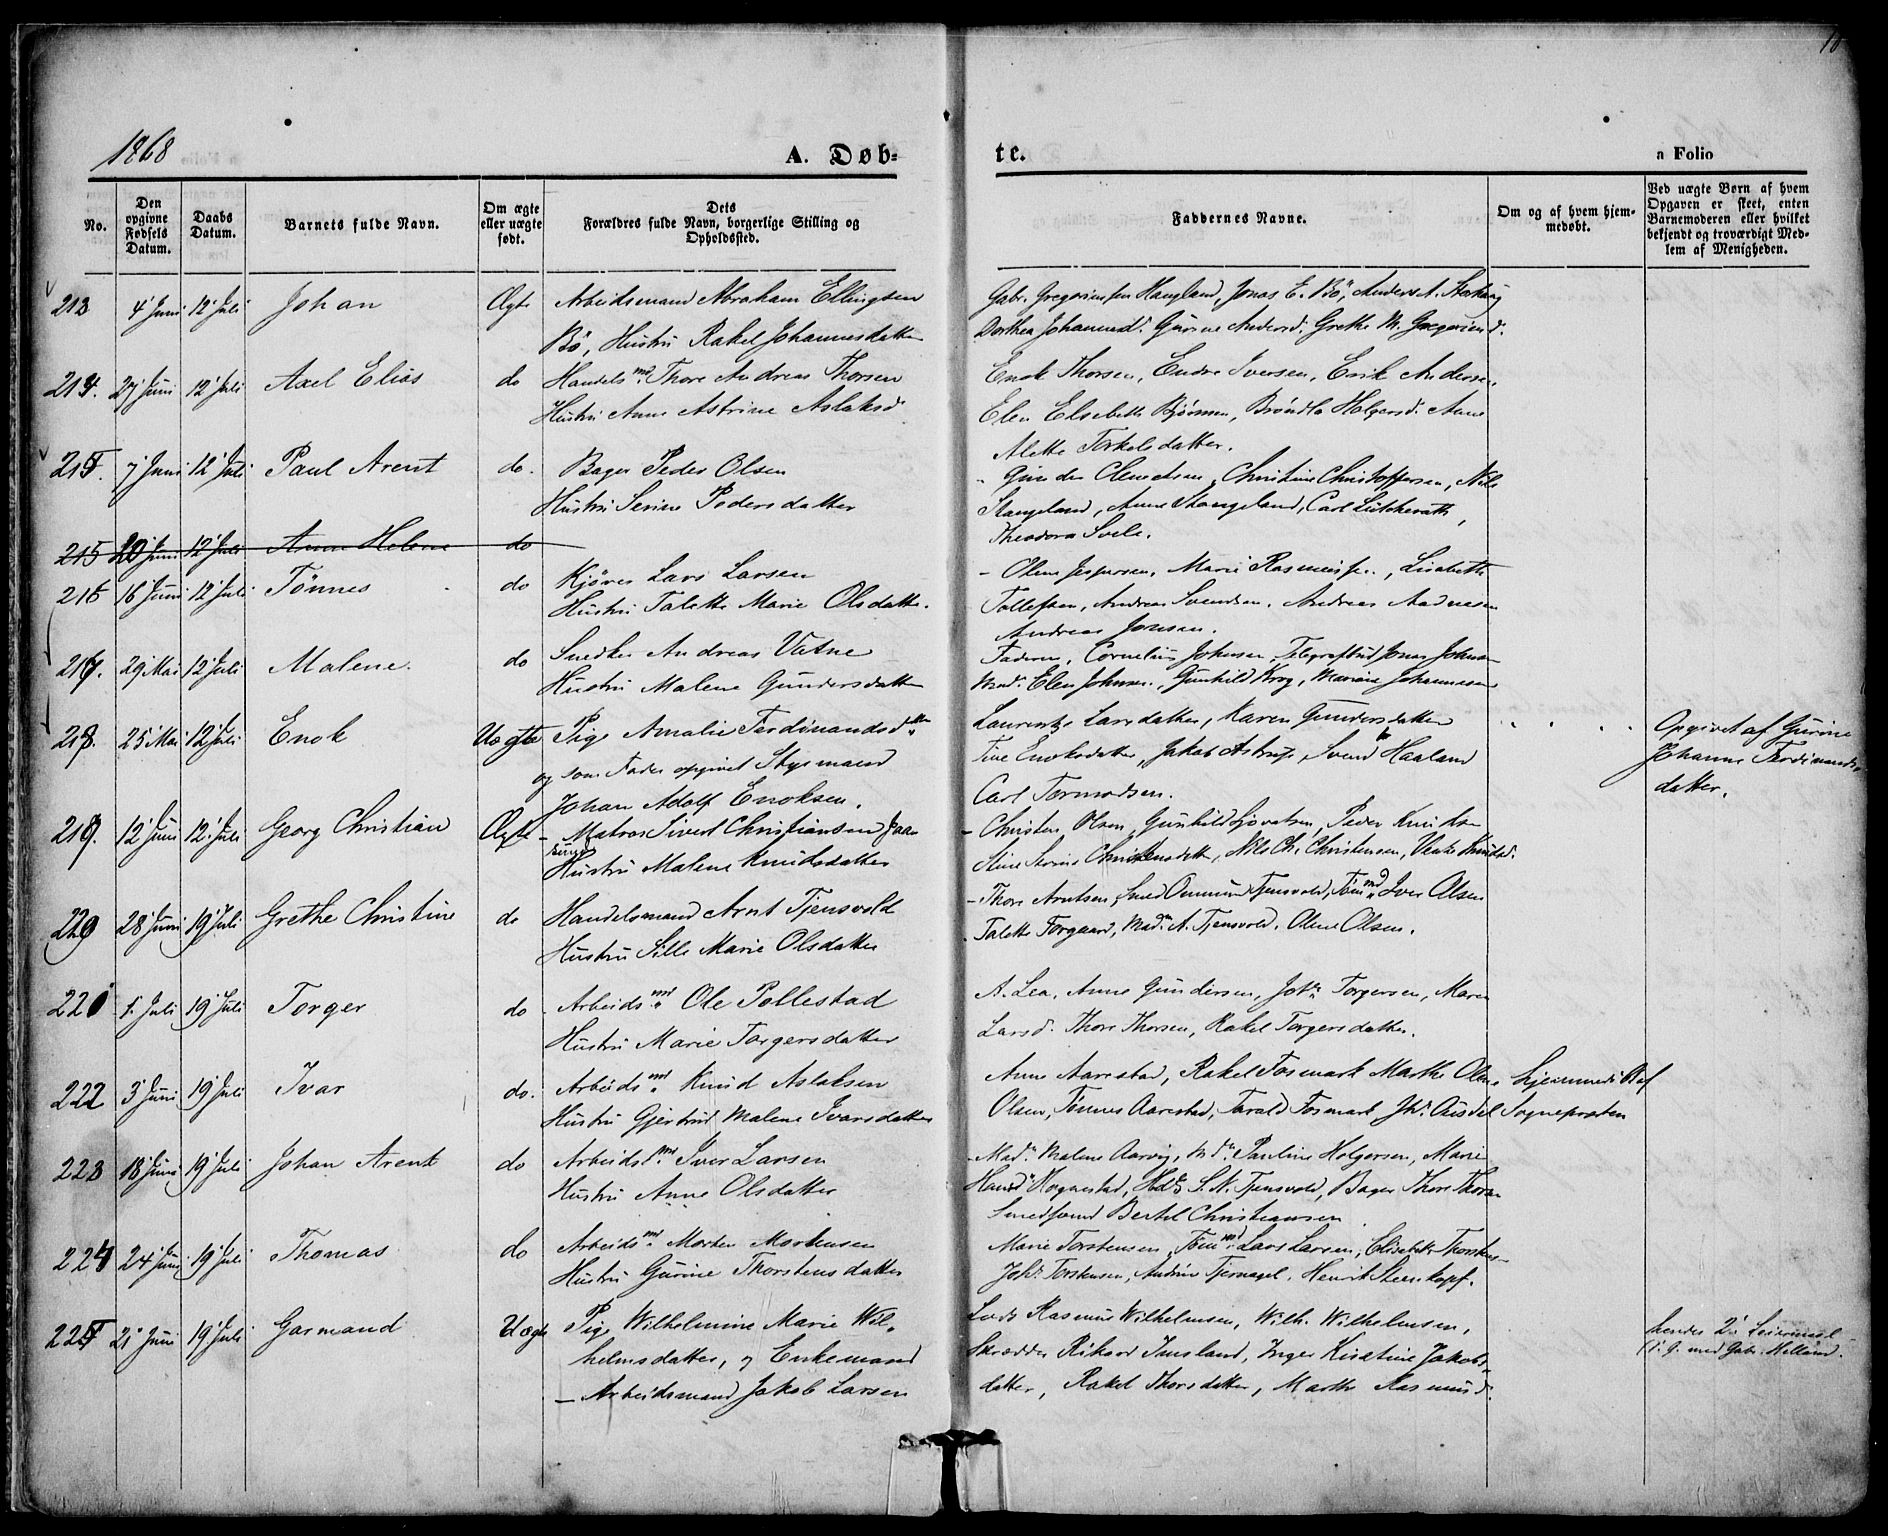 1868
A. Døb=
te.
a Folio
No.
Den opgivne Fødsels Datum.
Daabs Datum.
Barnets fulde Navn.
Om ægte eller uægte født.
Dets Forældres fulde Navn, borgerlige Stilling og Opholdssted.
Faddernes Navne.
Om og af hvem hjem-medøbt.
Ved uægte Børn af hvem Opgaven er skeet, enten Barnemoderen eller hvilket bekjendt og troværdigt Medlem af Menigheden.
213 4 Juni 12 Juli Johan Ægte Arbeidsmand Abraham Ellingsen
Bö, Hustru Rakel Johannesdatter
Gabr. Gregoriussen Haugland, Jonas E. Bö, Anders A.
Dorthea Johannesd. Gurine Andersd. Grethe M. Gregoriusd.
214. 27 Juni 12 Juli Axel Elias do Handelsmd. Thore Andreas Thorsen
Hustru Anne Astrine Aslaksd
Enok Thorsen, Endre Iversen, Erik Andersen,
Elen Elisabeth Bjørnsen, Brøndla Holgersd. Anne
Alette Torkelsdatter.
215. 7 Juni 12 Juli Paul Arent do. Bager Peder Olsen
Hustru Serine Pedersdatter
Gunder Clemetsen, Christine Christoffersen, Nils
Stangeland, Anne Stangeland, Carl Lütcherath,
Theodora Svele.
215 20 Juni 12 Juli Anne Helene do
216 16 Juni 12 Juli Tönnes do Kjører Lars Larsen
Hustru Talette Marie Olsdatter.
Oline Jespersen, Marie Rasmussen, Lisabeth
Tollefsen, Andreas Svendsen, Andreas Aadnesen
Andreas Jonsen.
217. 29 Mai 12 Juli Malene. do Snedker Andreas Vatne
Hustru Malene Gundersdatter
Faderen, Cornelius Johnsen, Telegrafbud Jonas Johnsen
Mad. Elen Johnsen, Gunhild Krog, Mariane Johannesen
218. 25 Mai 12 Juli Enok Uægte Pige Amalie Ferdinandsdtter
og som Fader opgivet Styrmand
Johan Adolf Enoksen.
Laurentze Larsdatter, Karen Gundersdatter
Tine Enoksdatter, Jakob Astrup, Svend Haaland
Carl Tormodsen.
Opgivet af Gurine
Johanne Ferdinands-
datter.
219. 12 Juni 12 Juli Georg Christian Ægte Matros Sivert Christiansen
Hustru Malene Knudsdatter
Christen Olsen, Gunhild Sjovatsen, Peder Knudsen
Stine Serine Christensdatter, Nils Ch. Christensen, Knudsd.
220 28 Juni 19 Juli Grethe Christine do Handelsmand Arnt Tjensvold
Hustru Sille Marie Olsdatter
Thore Arntsen, Smed Ommund Tjensvold, Tømmd. Iver Olsen
Talette Torgaard, Mad. A. Tjensvold, Oline Olsen.
221 1. Juli 19 Juli Torger do Arbeidsmd. Ole Pollestad
Hustru Marie Torgersdatter
A. Lea, Anne Gundersen, Joh. Torgersen, Maren
Larsd. Thore Thorsen, Rakel Torgersdatter.
222 3 Juni 19 Juli Ivar do. Arbeidsmd. Knud Aslaksen
Hustru Gjertrud Malene Ivarsdatter
Anne Aarestad, Rakel Fosmark Marthe Olsen
Olsen, Tønnes Aarestad, Tarald Fosmark, Jh. Ousdal
Hjemmedöbt af
Sognepresten
223 18 Juni 19 Juli Johan Arent do Arbeidsmd. Iver Larsen
Hustru Anne Olsdatter
Mad. Malene Aarvig, Md. Pauline Holgersen, Marie
Hognestad, Hdl. S. N. Tjensvold, Bager Thore Thorsen
Smedsvend Bertel Christiansen
224 24 Juni 19 Juli Thomas do Arbeidsmd. Morten Mortensen
Hustru Gurine Thorstensdatter
Marie Torstensen, Tømmd. Lars Larsen, Elisabeth Thorsten-
Joh. Torstensen, Andrine Tjernagel, Henrik Steenkopf.
225 21 Juni 19 Juli Garmand Uægte Pige Wilhelmine Marie Wil-
helmsdatter, og Enkemand
Arbeidsmand Jakob Larsen
Lods Rasmus Wilhelmsen, Wilh. Wilhelmsen,
Skrædder Rikard Imsland, Inger Kirstine Jakobs-
datter, Rakel Thorsdatter, Marthe Rasmusd.
hendes 2det Leiermaal
1. G. med Gabr. Helland.